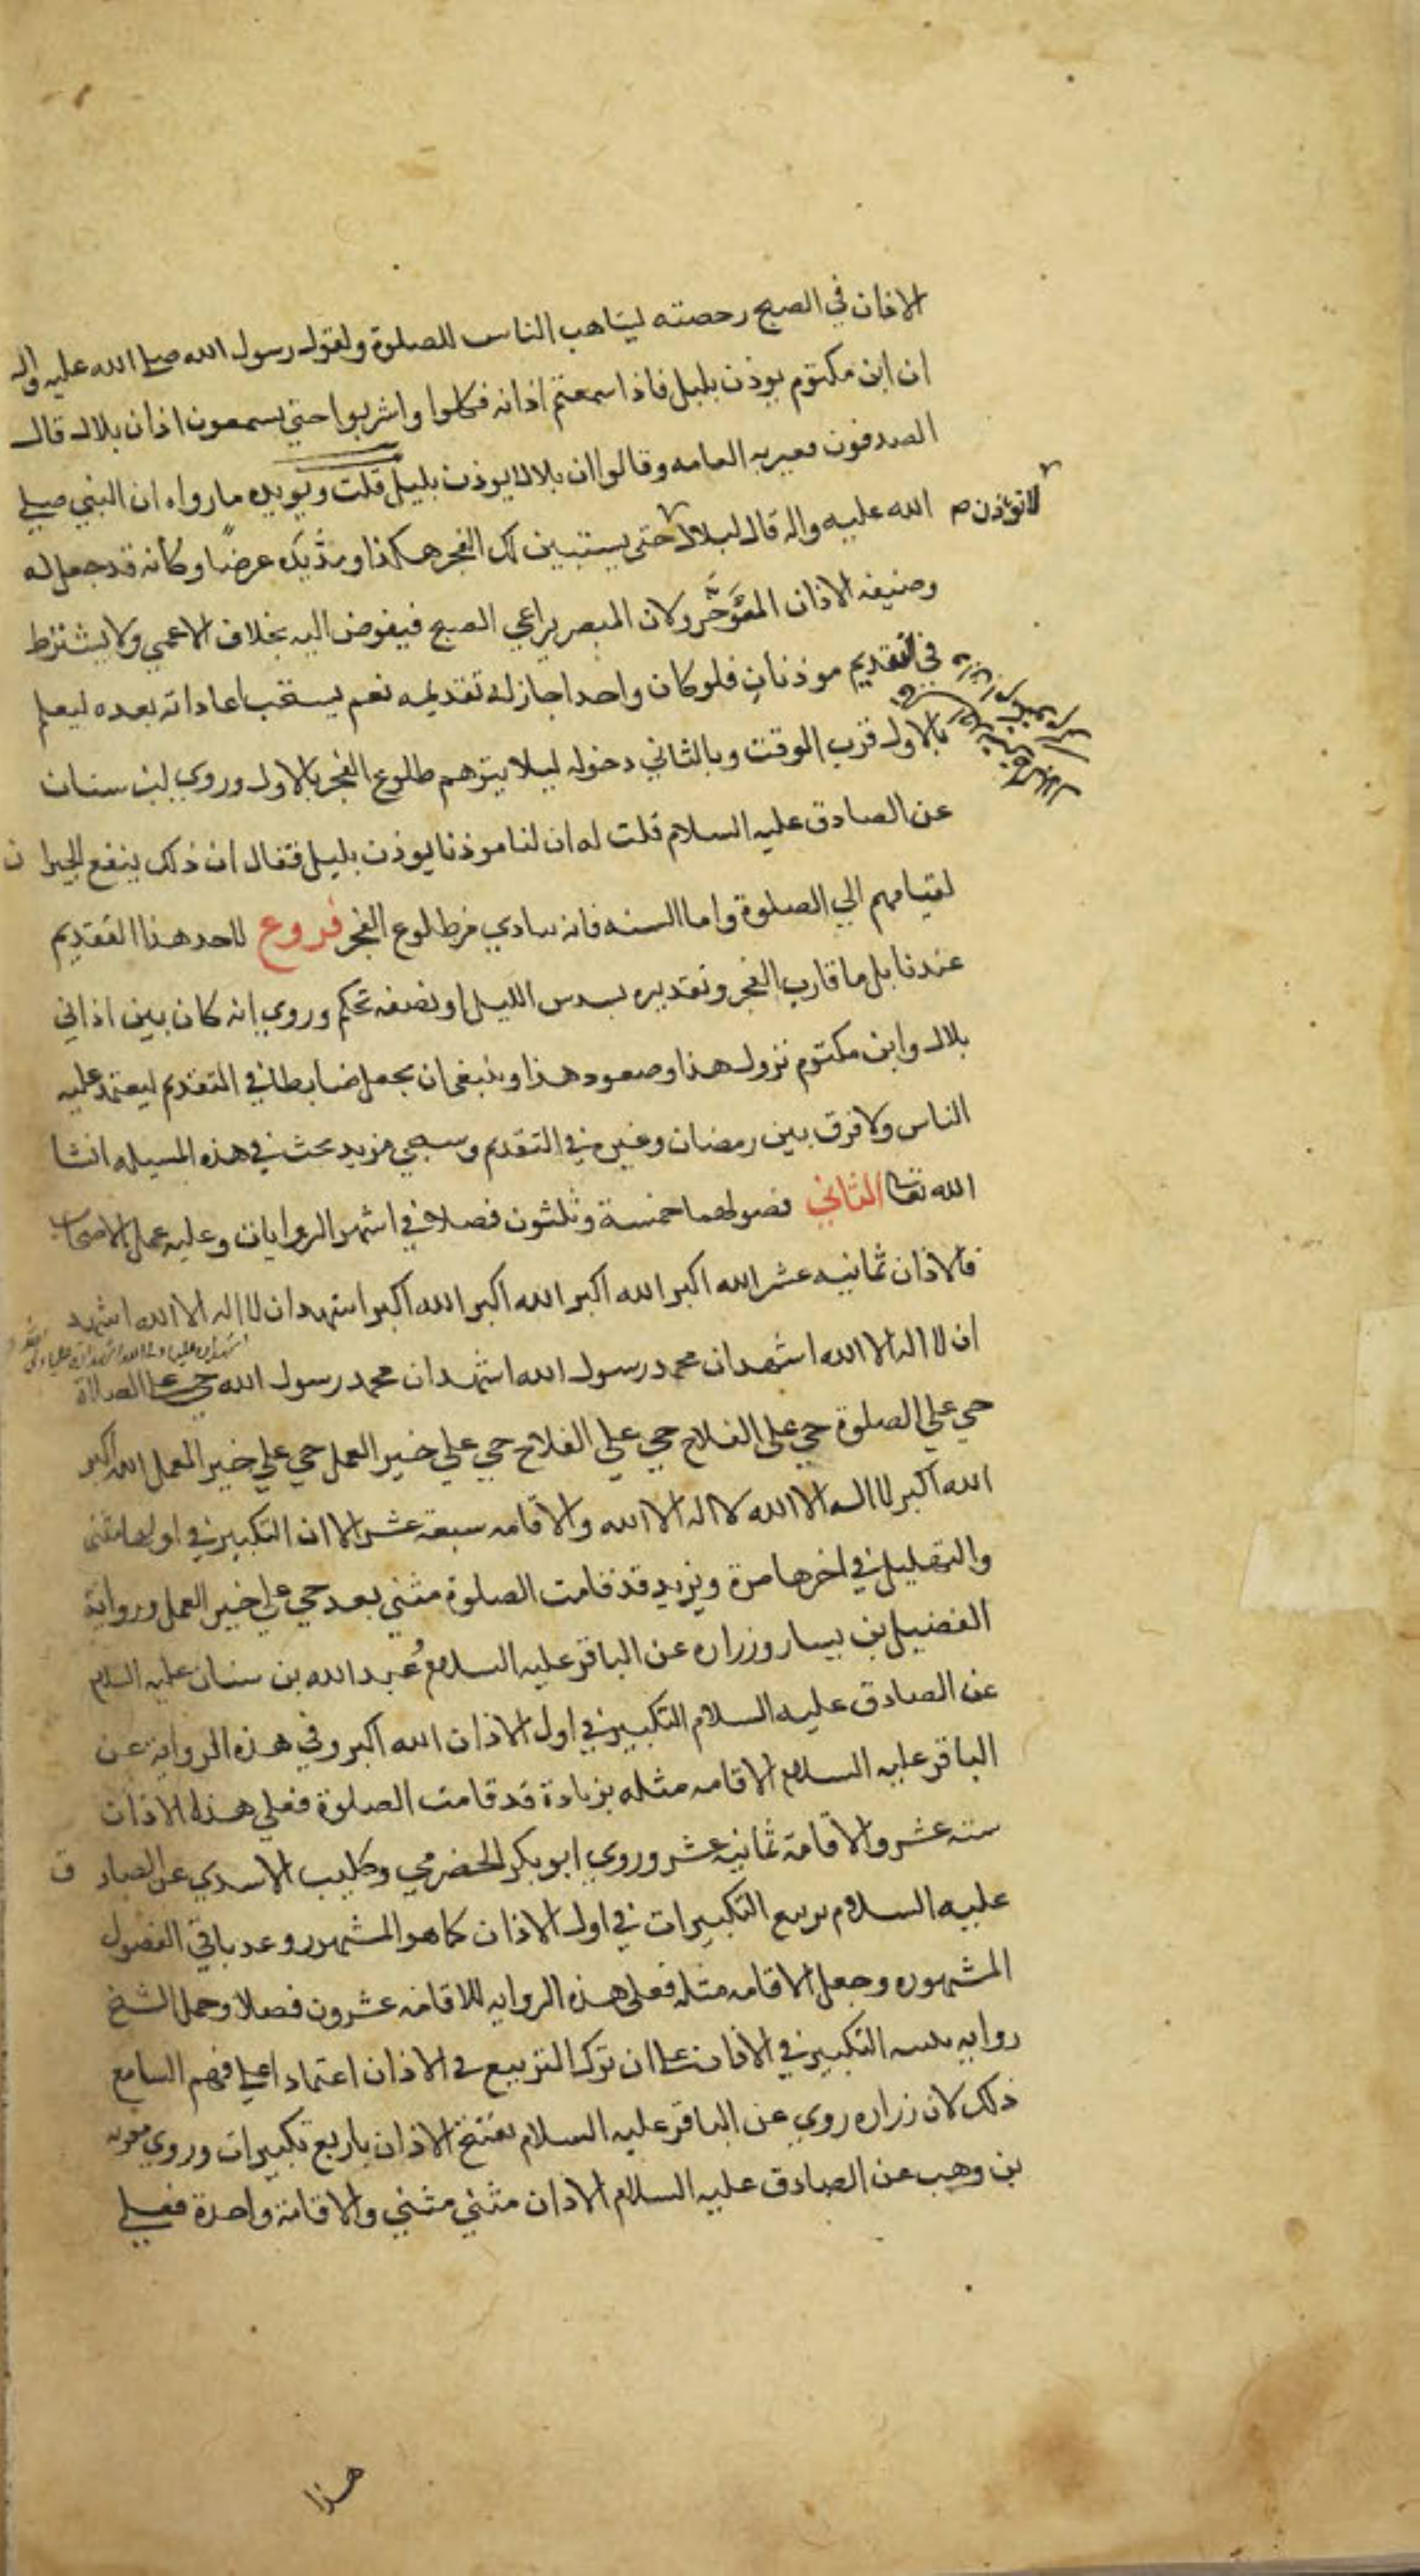 الاذان في الصبح رحصته ليتاهب الناس للصلوة ولقول رسول الله صلي الله عليه واله
ان ابن مكتوم يوذن بليل فاذا سمعتم اذانه فكلوا واشربوا حتي تسمعون اذان بلال قال
الصدقون فغيرته العامه وقالوا ان بلالا يوذن بليل قلت ويويده ما رواه ان النبي صلي
الله عليه واله قال لبلال حتي يستبين لك الفجر هكذا ومد يده عرضًا وكأنه قد جعل له
لا تؤذن
وضيفه الاذان المؤخر ولان المبصر يراعي الصبح فيفوض اليه بخلاف الاعمي ولا يشترط
في التقديم موذنان فلو كان واحدا جاز له تقديمه نعم يستحب اعاداته بعده ليعلم
بالاول قرب الوقت وبالثاني دخوله ليلا يتوهم طلوع الفجر بالاول وروي ابن سنان
عن الصادق عليه السلام قلت له ان لنا موذنا يوذن بليل فقال ان ذلك ينفع الجيران
لقيامهم الي الصلوة واما السنه فانه ينادي مع طلوع الفجر فروع لا حد هذا التقديم
عندنا بل ما قارب الفجر وتقديره بسدس الليل او نصفه تحكم وروي انه كان بين اذاني
بلال وابن مكتوم نزول هذا وصعود هذا وينبغي ان يجعل ضابطا في التقدم ليعتمد عليه
الناس ولا فرق بين رمضان وغيره في التقدم وسيجي مزيد بحث في هذه المسيله انشا
الله تعا الثاني فصولهما خمسة وثلثون فصلا في اشهر الروايات وعليه عمل الاصحاب
فالاذان ثمانيه عشر الله اكبر الله اكبر الله اكبر الله اكبر اشهد ان لا اله الا الله اشهد
ان لا اله الا الله اشهد ان محمد رسول الله اشهد ان محمد رسول الله حي علي الصلاة
حي علي الصلوة حي علي الفلاح حي علي الفلاح حي علي خير العمل حي علي خير العمل الله اكبر
الله اكبر لا اله الا الله لا اله الا الله والاقامه سبعة عشر الا ان التكبير في اولها مثني
والتهليل في اخرها مرة ويزيد قد قامت الصلوة مثني بعد حي علي خير العمل ورواية
الفضيل بن يسار وزراره عن الباقر عليه السلام وعبد الله بن سنان عليه السلام
عن الصادق عليه السلام التكبير في اول الاذان الله اكبر وفي هذه الرواية عن
الباقر عليه السلام الاقامه مثله بزيادة قد قامت الصلوة فعلي هذا الاذان
سته عشر والاقامة ثمانيه عشر وروي ابو بكر الحضرمي وكليب الاسدي عن الصادق
عليه السلام تربيع التكبيرات في اول الاذان كما هو المشهور وعد باقي الفصول
المشهوره وجعل الاقامه مثله فعلي هذه الروايه للاقامه عشرون فصلا وحمل الشيخ
روايه تثنيه التكبير في الاذان علي ان ترك التربيع في الاذان اعتمادا علي فهم السامع
ذلك لان زراره روي عن الباقر عليه السلام تفتتح الاذان باربع تكبيرات وروي معويه
بن وهب عن الصادق عليه السلام الاذان مثني مثني والاقامة واحدة فعلي
هذا